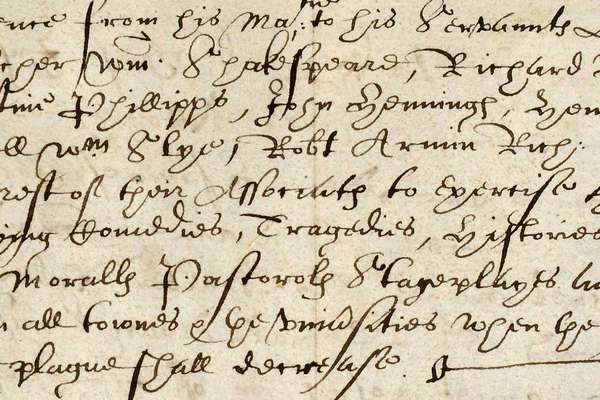 ence from his Matie: to his Servaunts
cher Wm. Shakespeare, Richard
tine Phillipps, John Henningh, Hen
ll Wm Slye, Robt Armin Rich:
rest of their Associats to exercise
ying Comedies, Tragedies, Histories
Moralls Pastorols Stageplayes
all townes & the vniuersities when the
plague shall decrease.